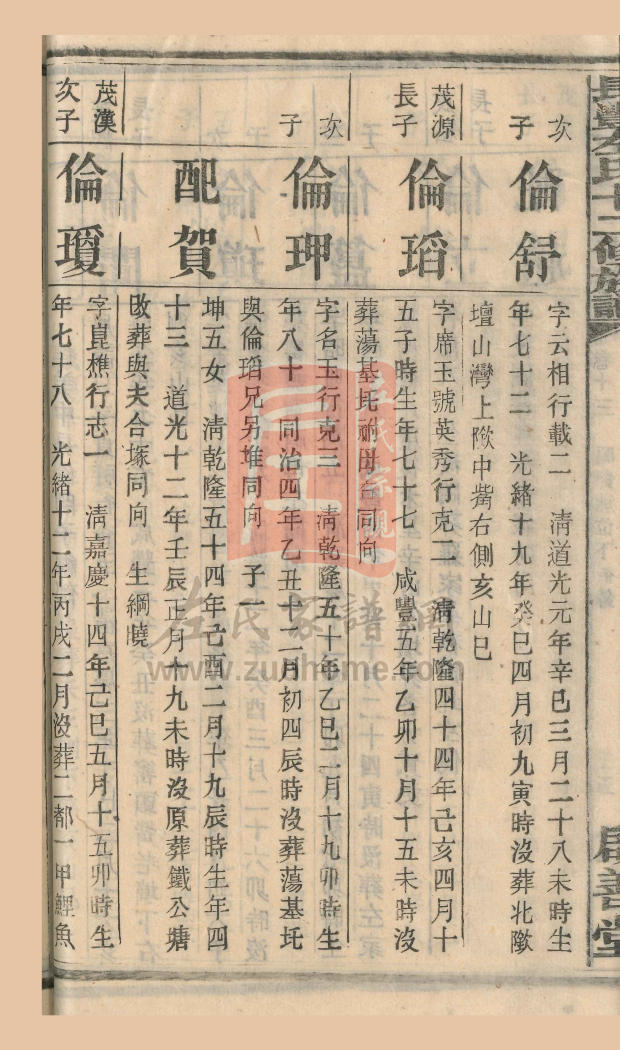 長豐左氏十二修族譜
啟善堂
次子
倫舒
字云相行載二 清道光元年辛巳三月二十八未時生
年七十二 光緒十九年癸巳四月初九寅時沒葬北𡼏
壇山灣上𡼏中嘴右側亥山巳
茂源長子
倫瑫
字席玉號英秀行克二 清乾隆四十四年己亥四月十
五子時生年七十七 咸豐五年乙卯十月十五未時沒
葬蕩基坵祔母合同向
次子
倫玾
字名玉行克三 清乾隆五十年乙巳二月十九卯時生
年八十 同治四年乙丑十二月初四辰時沒葬蕩基坵
與倫瑫兄另堆同向 子一
配賀
坤五女 清乾隆五十四年己酉二月十九辰時生年四
十三 道光十二年壬辰正月十九未時沒原葬鐵公塘
改葬與夫合塚同向 生綱曉
茂漢次子
倫瓊
字崑樵行志一 清嘉慶十四年己巳五月十五卯時生
年七十八 光緒十二年丙戌二月沒葬二都一甲鯉魚
左氏家譜網
www.zuohome.com